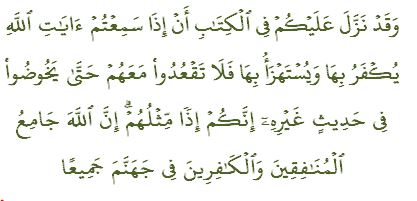 وَقَدْ نَزَّلَ عَلَيْكُمْ فِى ٱلْكِتَٰبِ أَنْ إِذَا سَمِعْتُمْ ءَايَٰتِ ٱللَّهِ
يُكْفَرُ بِهَا وَيُسْتَهْزَأُ بِهَا فَلَا تَقْعُدُوا۟ مَعَهُمْ حَتَّىٰ يَخُوضُوا۟
فِى حَدِيثٍ غَيْرِهِۦٓ ۚ إِنَّكُمْ إِذًا مِّثْلُهُمْ ۗ إِنَّ ٱللَّهَ جَامِعُ
ٱلْمُنَٰفِقِينَ وَٱلْكَٰفِرِينَ فِى جَهَنَّمَ جَمِيعًا